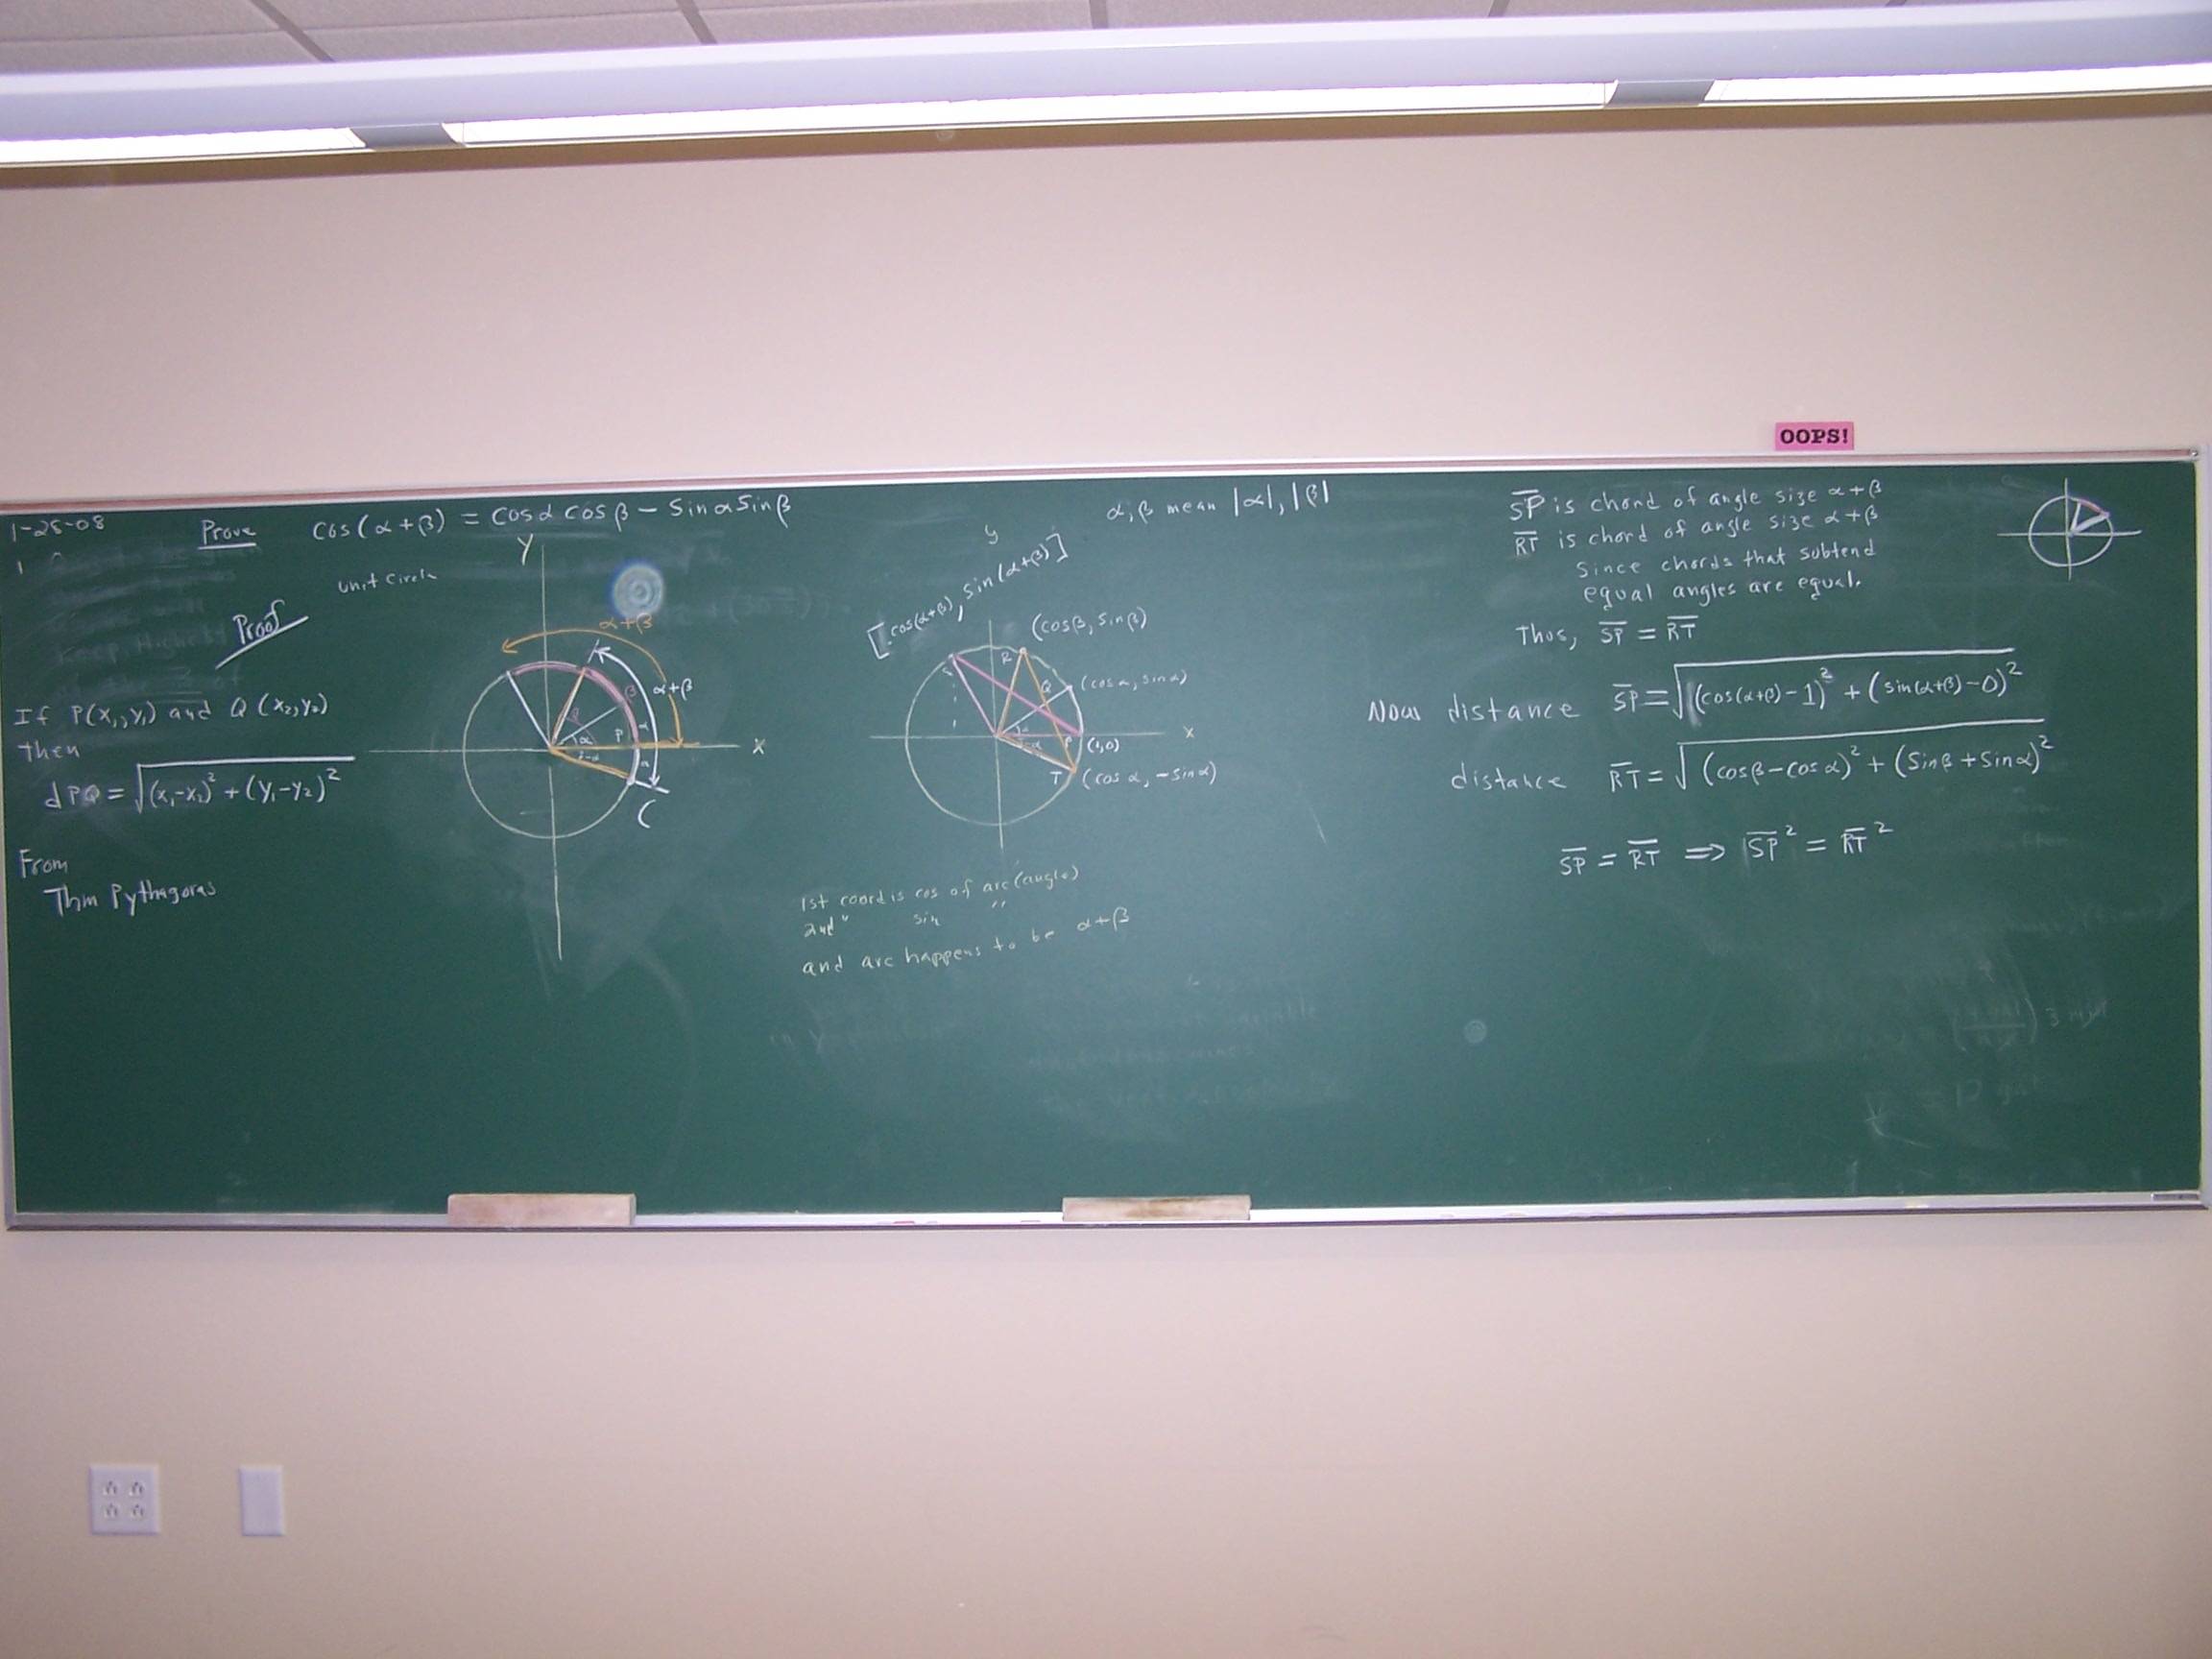 OOPS!
1-28-08
Prove cos(α+β) = cosα cosβ − sinα sinβ
unit circle
Proof
If P(x₁,y₁) and Q(x₂,y₂)
then
dPQ = √((x₁-x₂)² + (y₁-y₂)²)
From
Thm Pythagoras
Y
α+β
α+β
β
β
α
α
P
α
-α
x
C
α, β mean |α|, |β|
y
[cos(α+β), sin(α+β)]
(cosβ, sinβ)
R
S
Q
(cosα, sinα)
x
P
(1,0)
α
-α
T
(cosα, −sinα)
1st coord is cos of arc (angle)
2nd " sin "
and arc happens to be α+β
SP is chord of angle size α+β
RT is chord of angle size α+β
since chords that subtend
equal angles are equal.
Thus, SP = RT
Now distance SP = √((cos(α+β)−1)² + (sin(α+β)−0)²)
distance RT = √((cosβ−cosα)² + (sinβ+sinα)²)
SP = RT ⇒ SP² = RT²